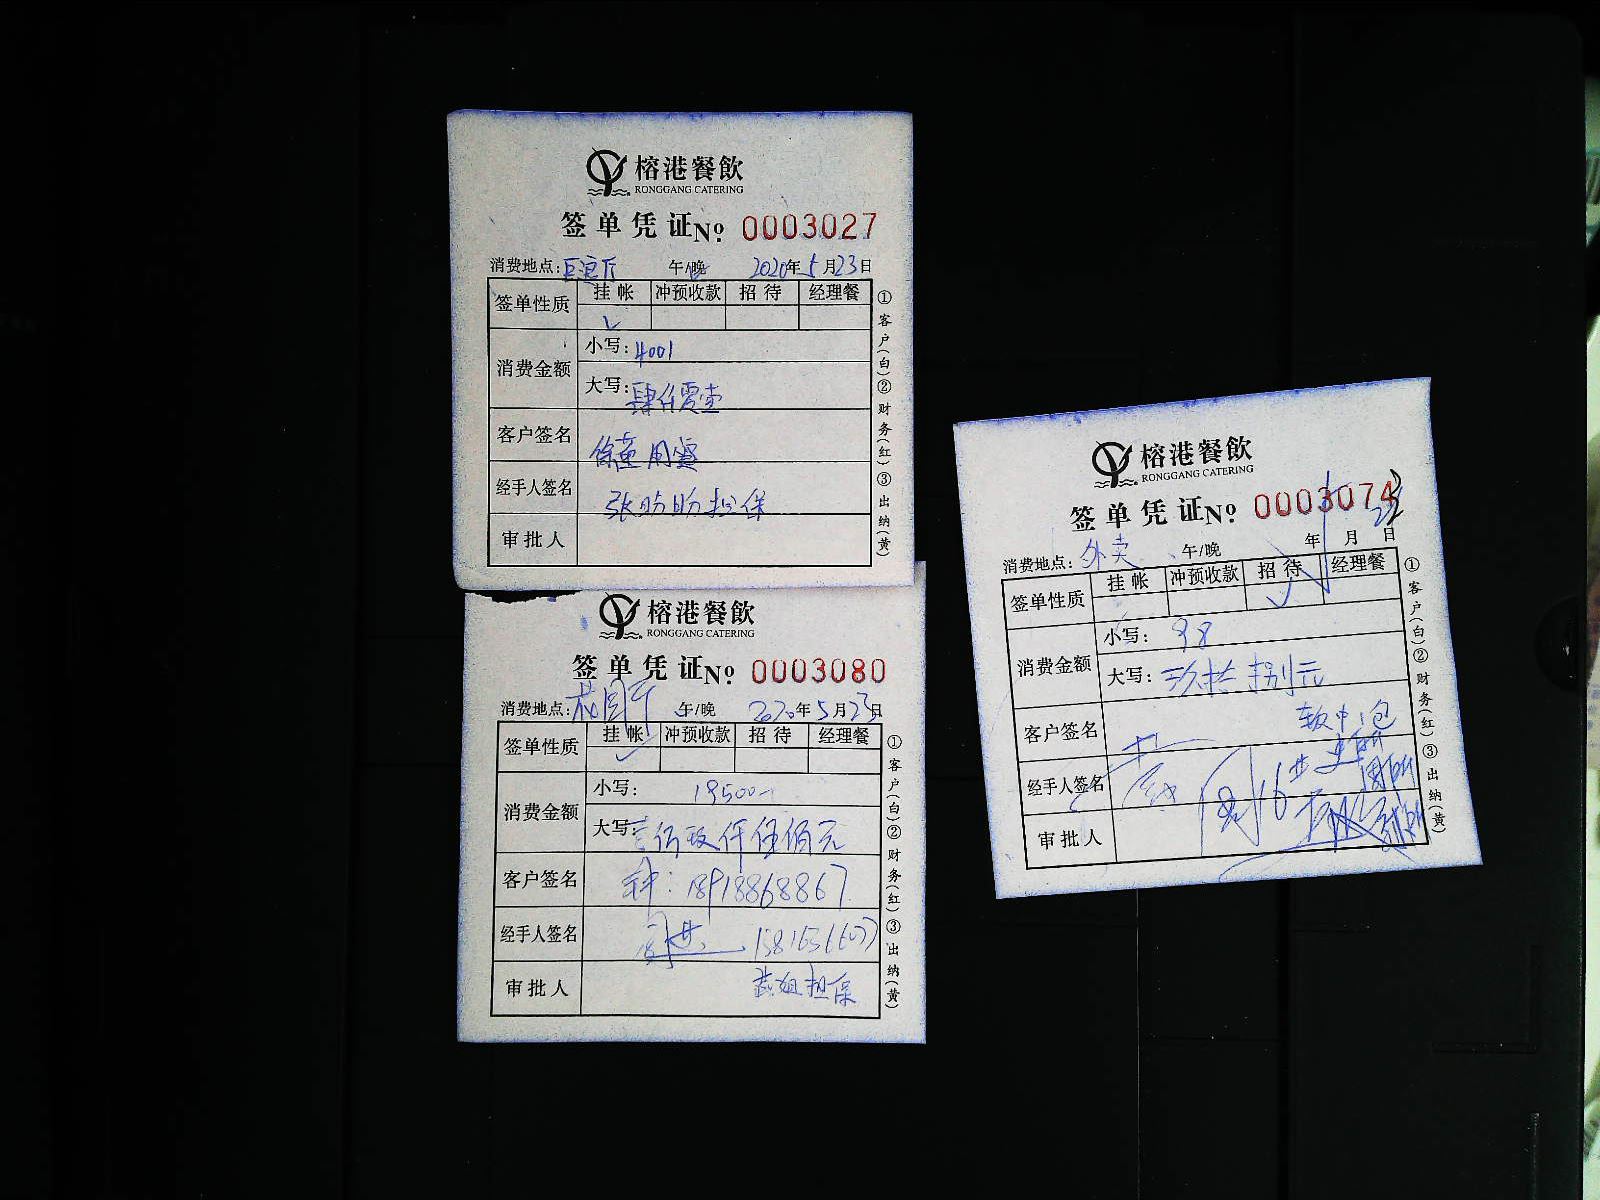 榕港餐飲
RONGGANG CATERING
签单凭证 № 0003027
消费地点: 午/晚 2020年5月23日
签单性质 挂帐 冲预收款 招待 经理餐
✓
消费金额 小写: 4001
大写: 肆仟零壹
客户签名
经手人签名 张盼盼担保
审批人
①客户(白)②财务(红)③出纳(黄)
榕港餐飲
RONGGANG CATERING
签单凭证 № 0003080
消费地点: 午/晚 2020年5月23日
签单性质 挂帐 冲预收款 招待 经理餐
✓
消费金额 小写: 19500
大写: 仟伍佰元
客户签名 钟: 18918868867
经手人签名
审批人 姐担保
①客户(白)②财务(红)③出纳(黄)
榕港餐飲
RONGGANG CATERING
签单凭证 № 0003074
消费地点: 外卖 午/晚 年 月 23日
签单性质 挂帐 冲预收款 招待 经理餐
✓
消费金额 小写: 98
大写: 玖拾捌元
客户签名 软中1包
经手人签名
审批人
①客户(白)②财务(红)③出纳(黄)